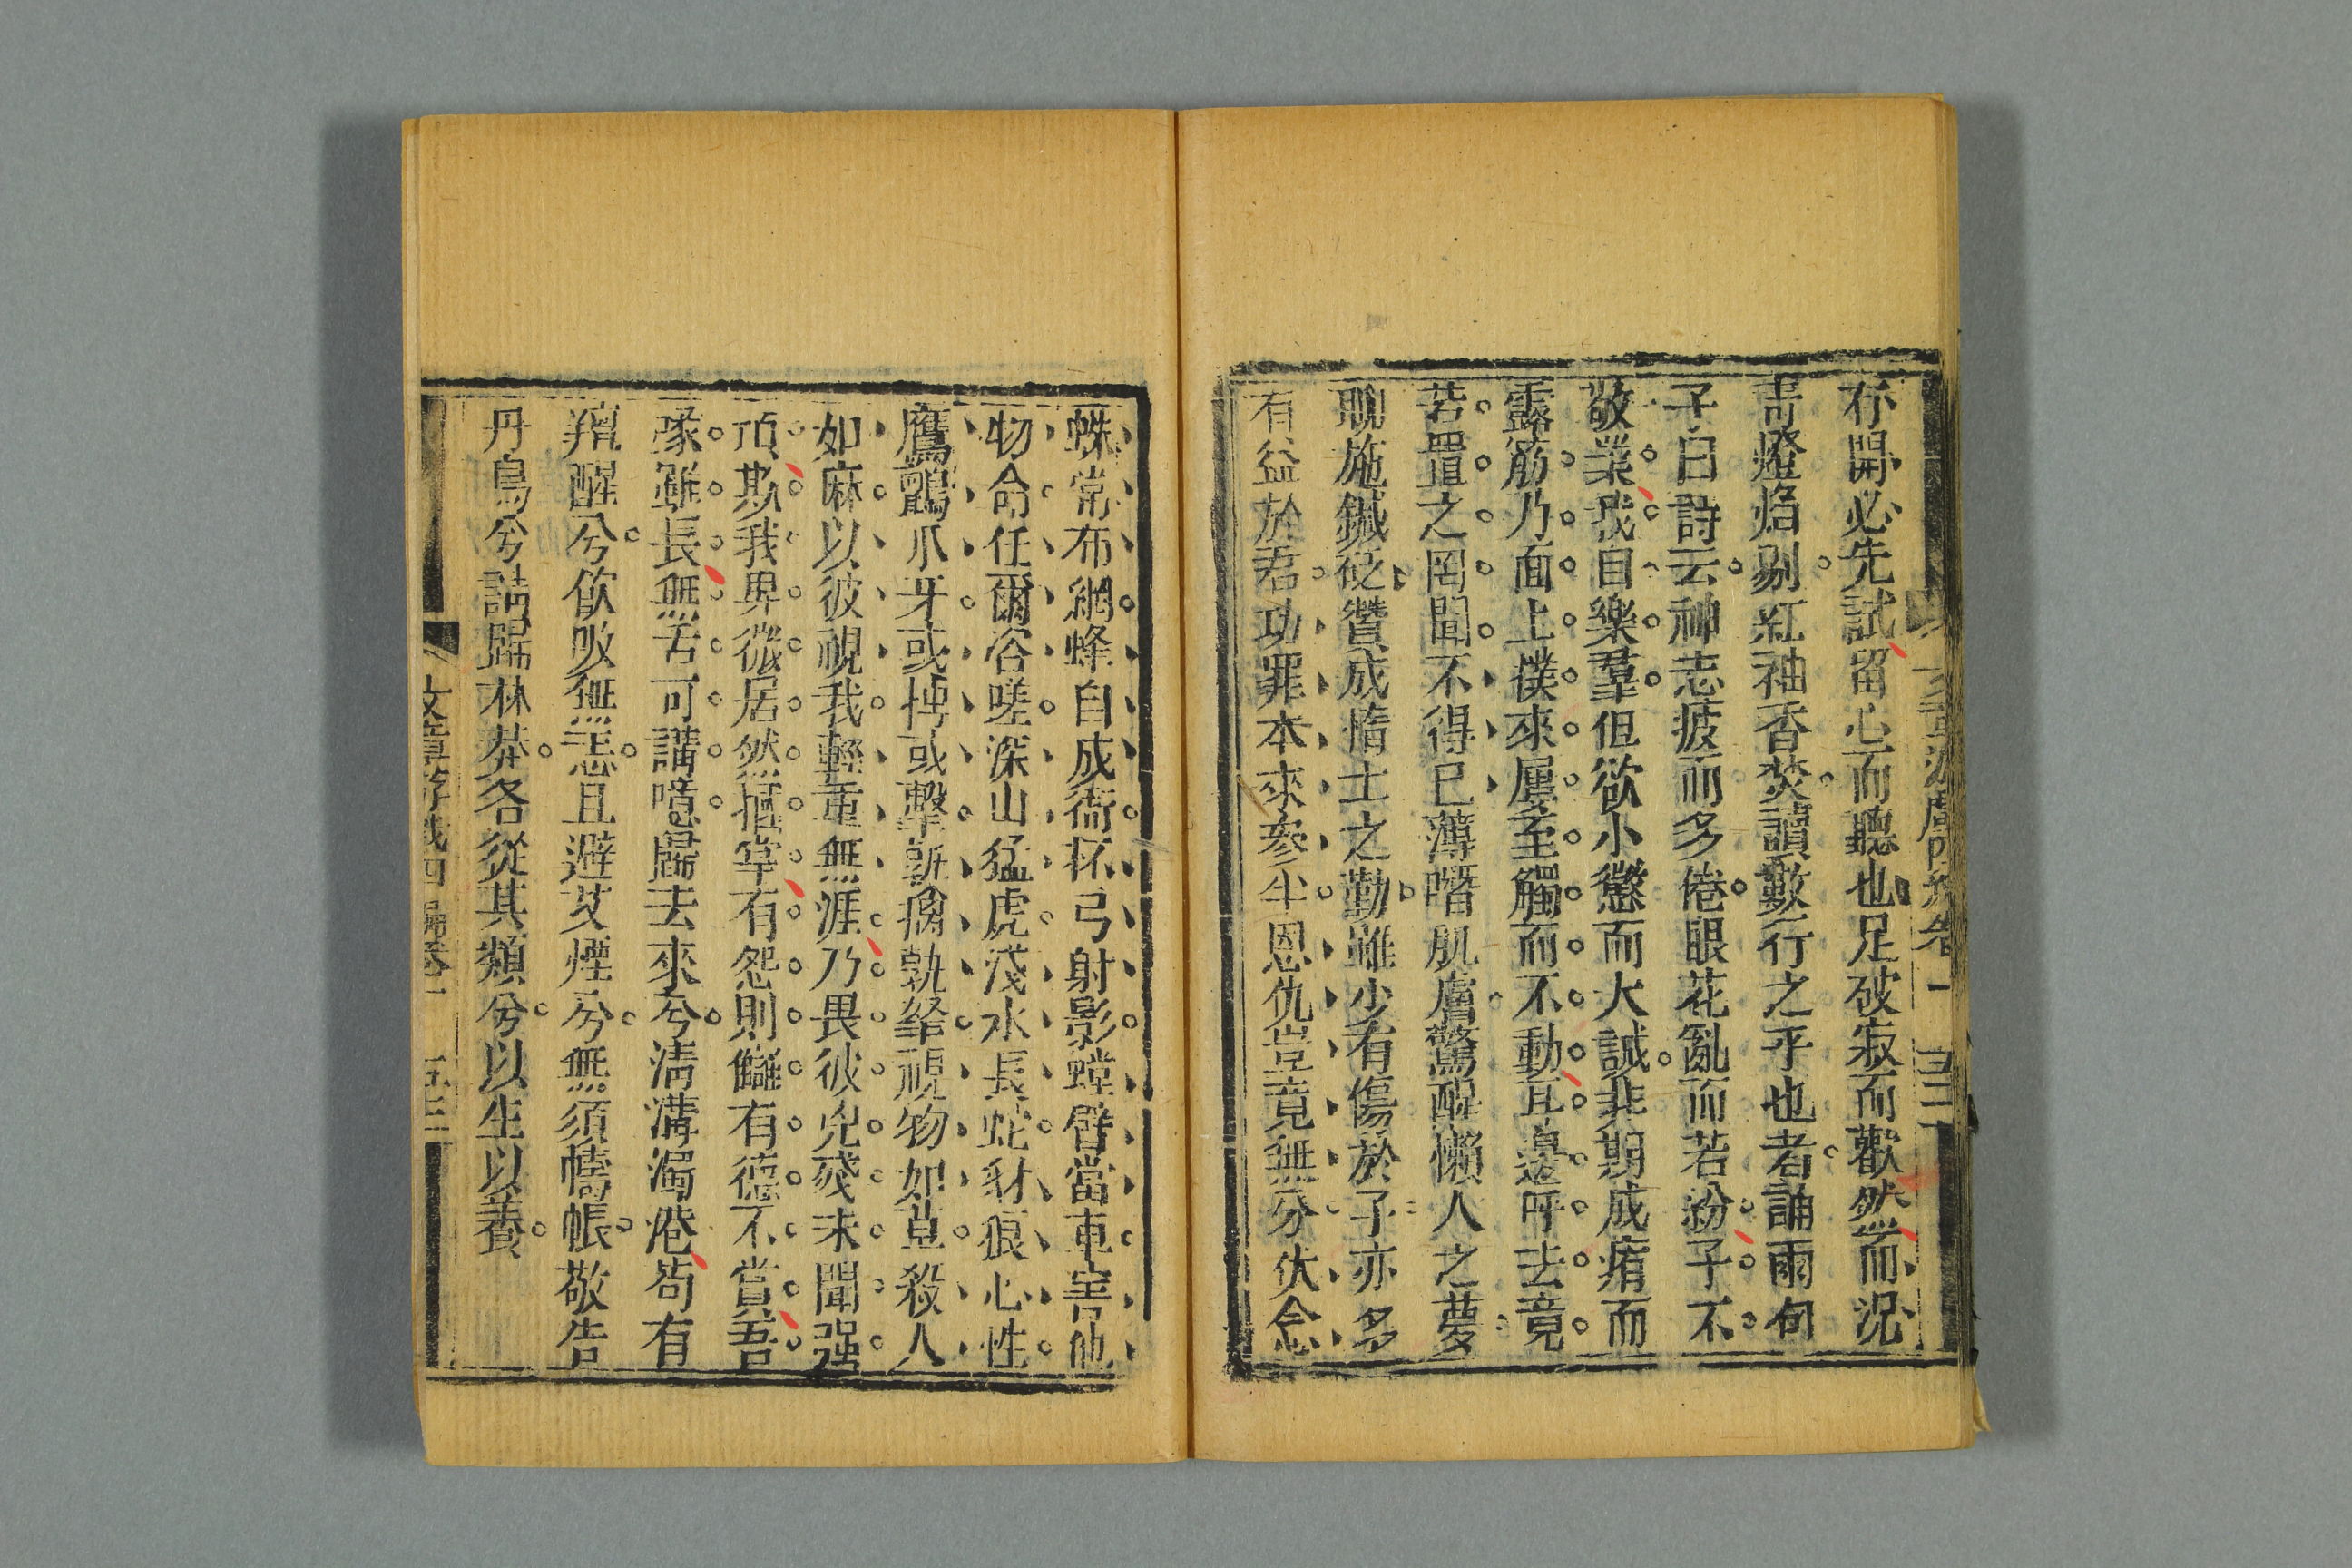 有開必先試留心而聽也足破寂而歡然而況
青燈焰剔紅袖香焚讀數行之乎也者誦雨句
子曰詩云神志疲而多倦眼花亂而若紛子不
敬業我自樂羣但欲小懲而大誡非期成痏而
露筋乃面上撲來屢至觸而不動耳邊呼去竟
若置之罔聞不得已薄噆肌膚驚醒懶人之夢
聊施鍼砭贊成惰士之勤雖少有傷於子亦多
有益於君功罪本來參半恩仇豈竟無分伏念
蛛常布網蜂自成衙杯弓射影螳臂當車害他
物命任爾谷嗟深山猛虎淺水長蛇豺狼心性
鷹鸇爪牙或搏或擊新𤺊執拏視物如草殺人
如麻以彼視我輕重無涯乃畏彼兇殘未聞强
項欺我畀微居然摑掌有怨則讎有德不賞吾
喙雖長無舌可講噫歸去來兮淸溝濁港苟有
羶醒兮飮吸無恙且避艾煙兮無須幬帳敬告
丹鳥兮請歸林莽各從其類兮以生以養
文章游戲四編卷一